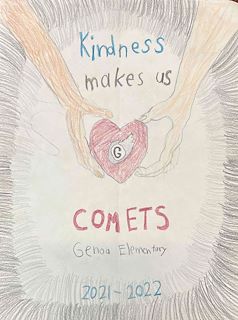 Kindness
makes us
G
COMETS
Genoa Elementary
2021-2022